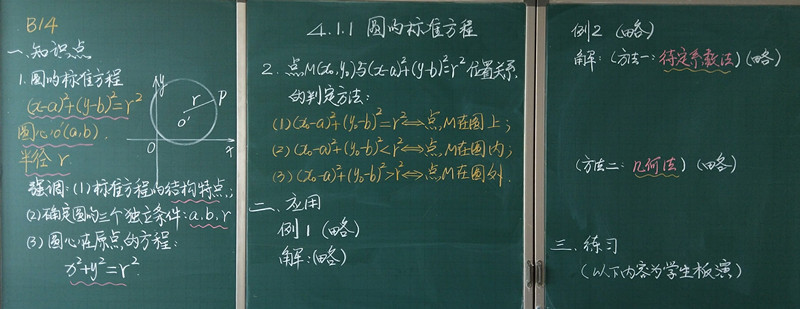 B14
一.知识点
1.圆的标准方程
(x-a)²+(y-b)²=r²
圆心o'(a,b).
半径 r
y
r
P
o'
O
x
强调:(1)标准方程的结构特点;
(2)确定圆的三个独立条件:a.b.r
(3)圆心在原点的方程:
x²+y²=r².
4.1.1 圆的标准方程
2.点M(x₀,y₀)与(x-a)²+(y-b)²=r²位置关系
的判定方法:
(1)(x₀-a)²+(y₀-b)²=r²⇔点M在圆上;
(2)(x₀-a)²+(y₀-b)²<r²⇔点M在圆内;
(3)(x₀-a)²+(y₀-b)²>r²⇔点M在圆外.
二.应用
例1(略)
解:(略)
例2(略)
解:(方法一:待定系数法)(略)
(方法二:几何法)(略)
三.练习
(以下内容为学生板演)